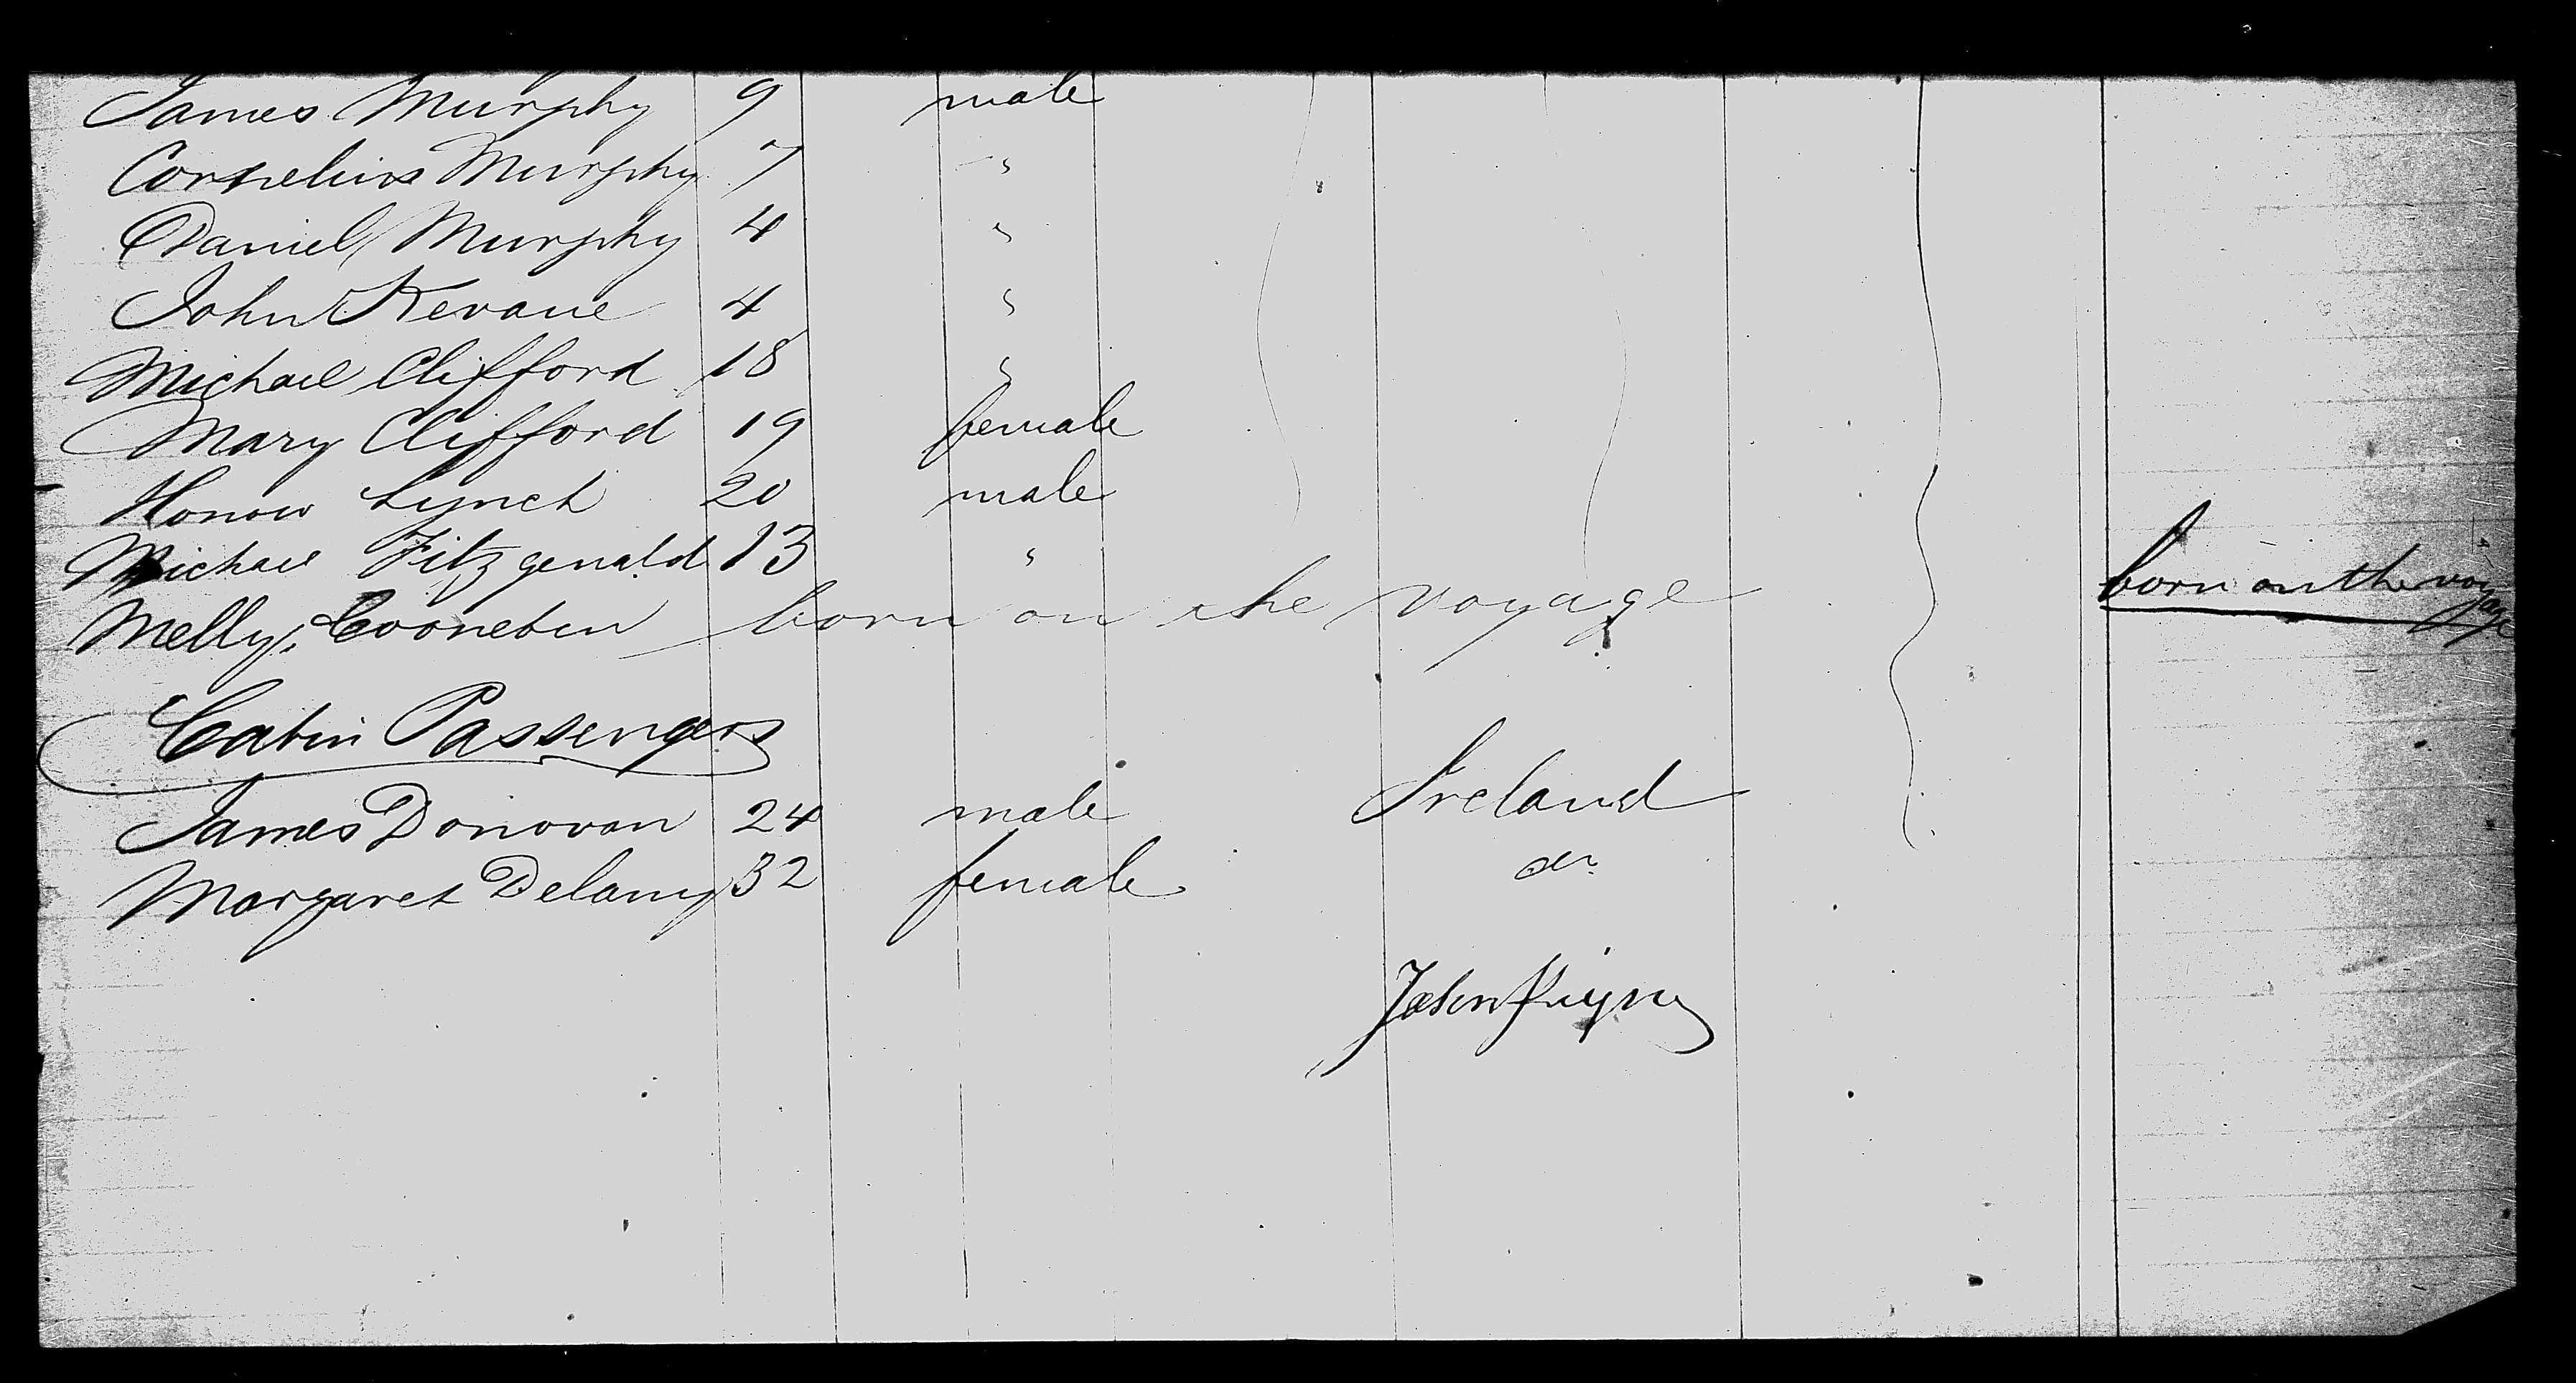 James Murphy 9 male
Cornelius Murphy 7 "
Daniel Murphy 4 "
John Kevane 4 "
Michael Clifford 18 "
Mary Clifford 19 female
Honow Lynch 20 male
Michael Fitzgerald 13 "
Melly born on the voyage born on the voyage
Cabin Passengers
James Donovan 24 male Ireland
Margaret Delany 32 female do
John